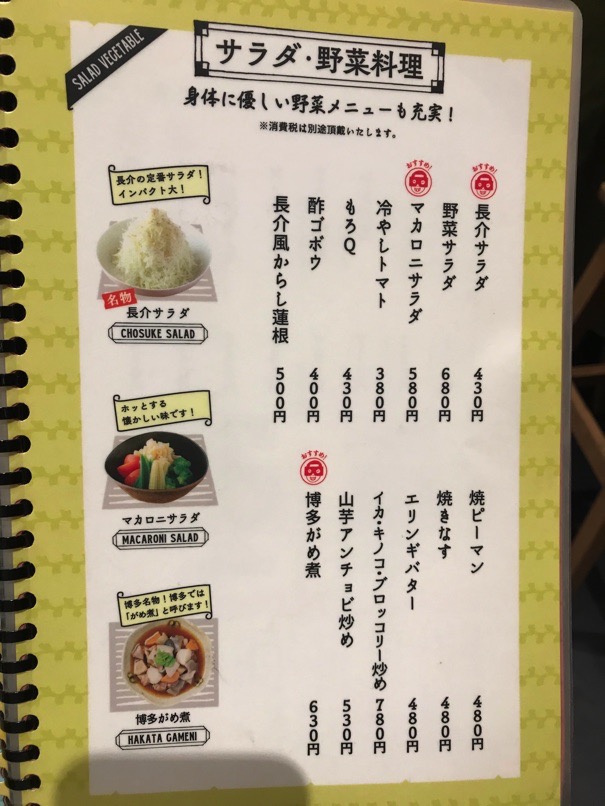 SALAD VEGETABLE
サラダ・野菜料理
身体に優しい野菜メニューも充実！
※消費税は別途頂戴いたします。
おすすめ！
長介サラダ 430円
野菜サラダ 680円
おすすめ！
マカロニサラダ 580円
冷やしトマト 380円
もろQ 430円
酢ゴボウ 400円
長介風からし蓮根 500円
焼ピーマン 480円
焼きなす 480円
エリンギバター 480円
イカ・キノコ・ブロッコリー炒め 780円
山芋アンチョビ炒め 530円
おすすめ！
博多がめ煮 630円
長介の定番サラダ！
インパクト大！
名物
長介サラダ
CHOSUKE SALAD
ホッとする
懐かしい味です！
マカロニサラダ
MACARONI SALAD
博多名物！博多では
「がめ煮」と呼びます！
博多がめ煮
HAKATA GAMENI